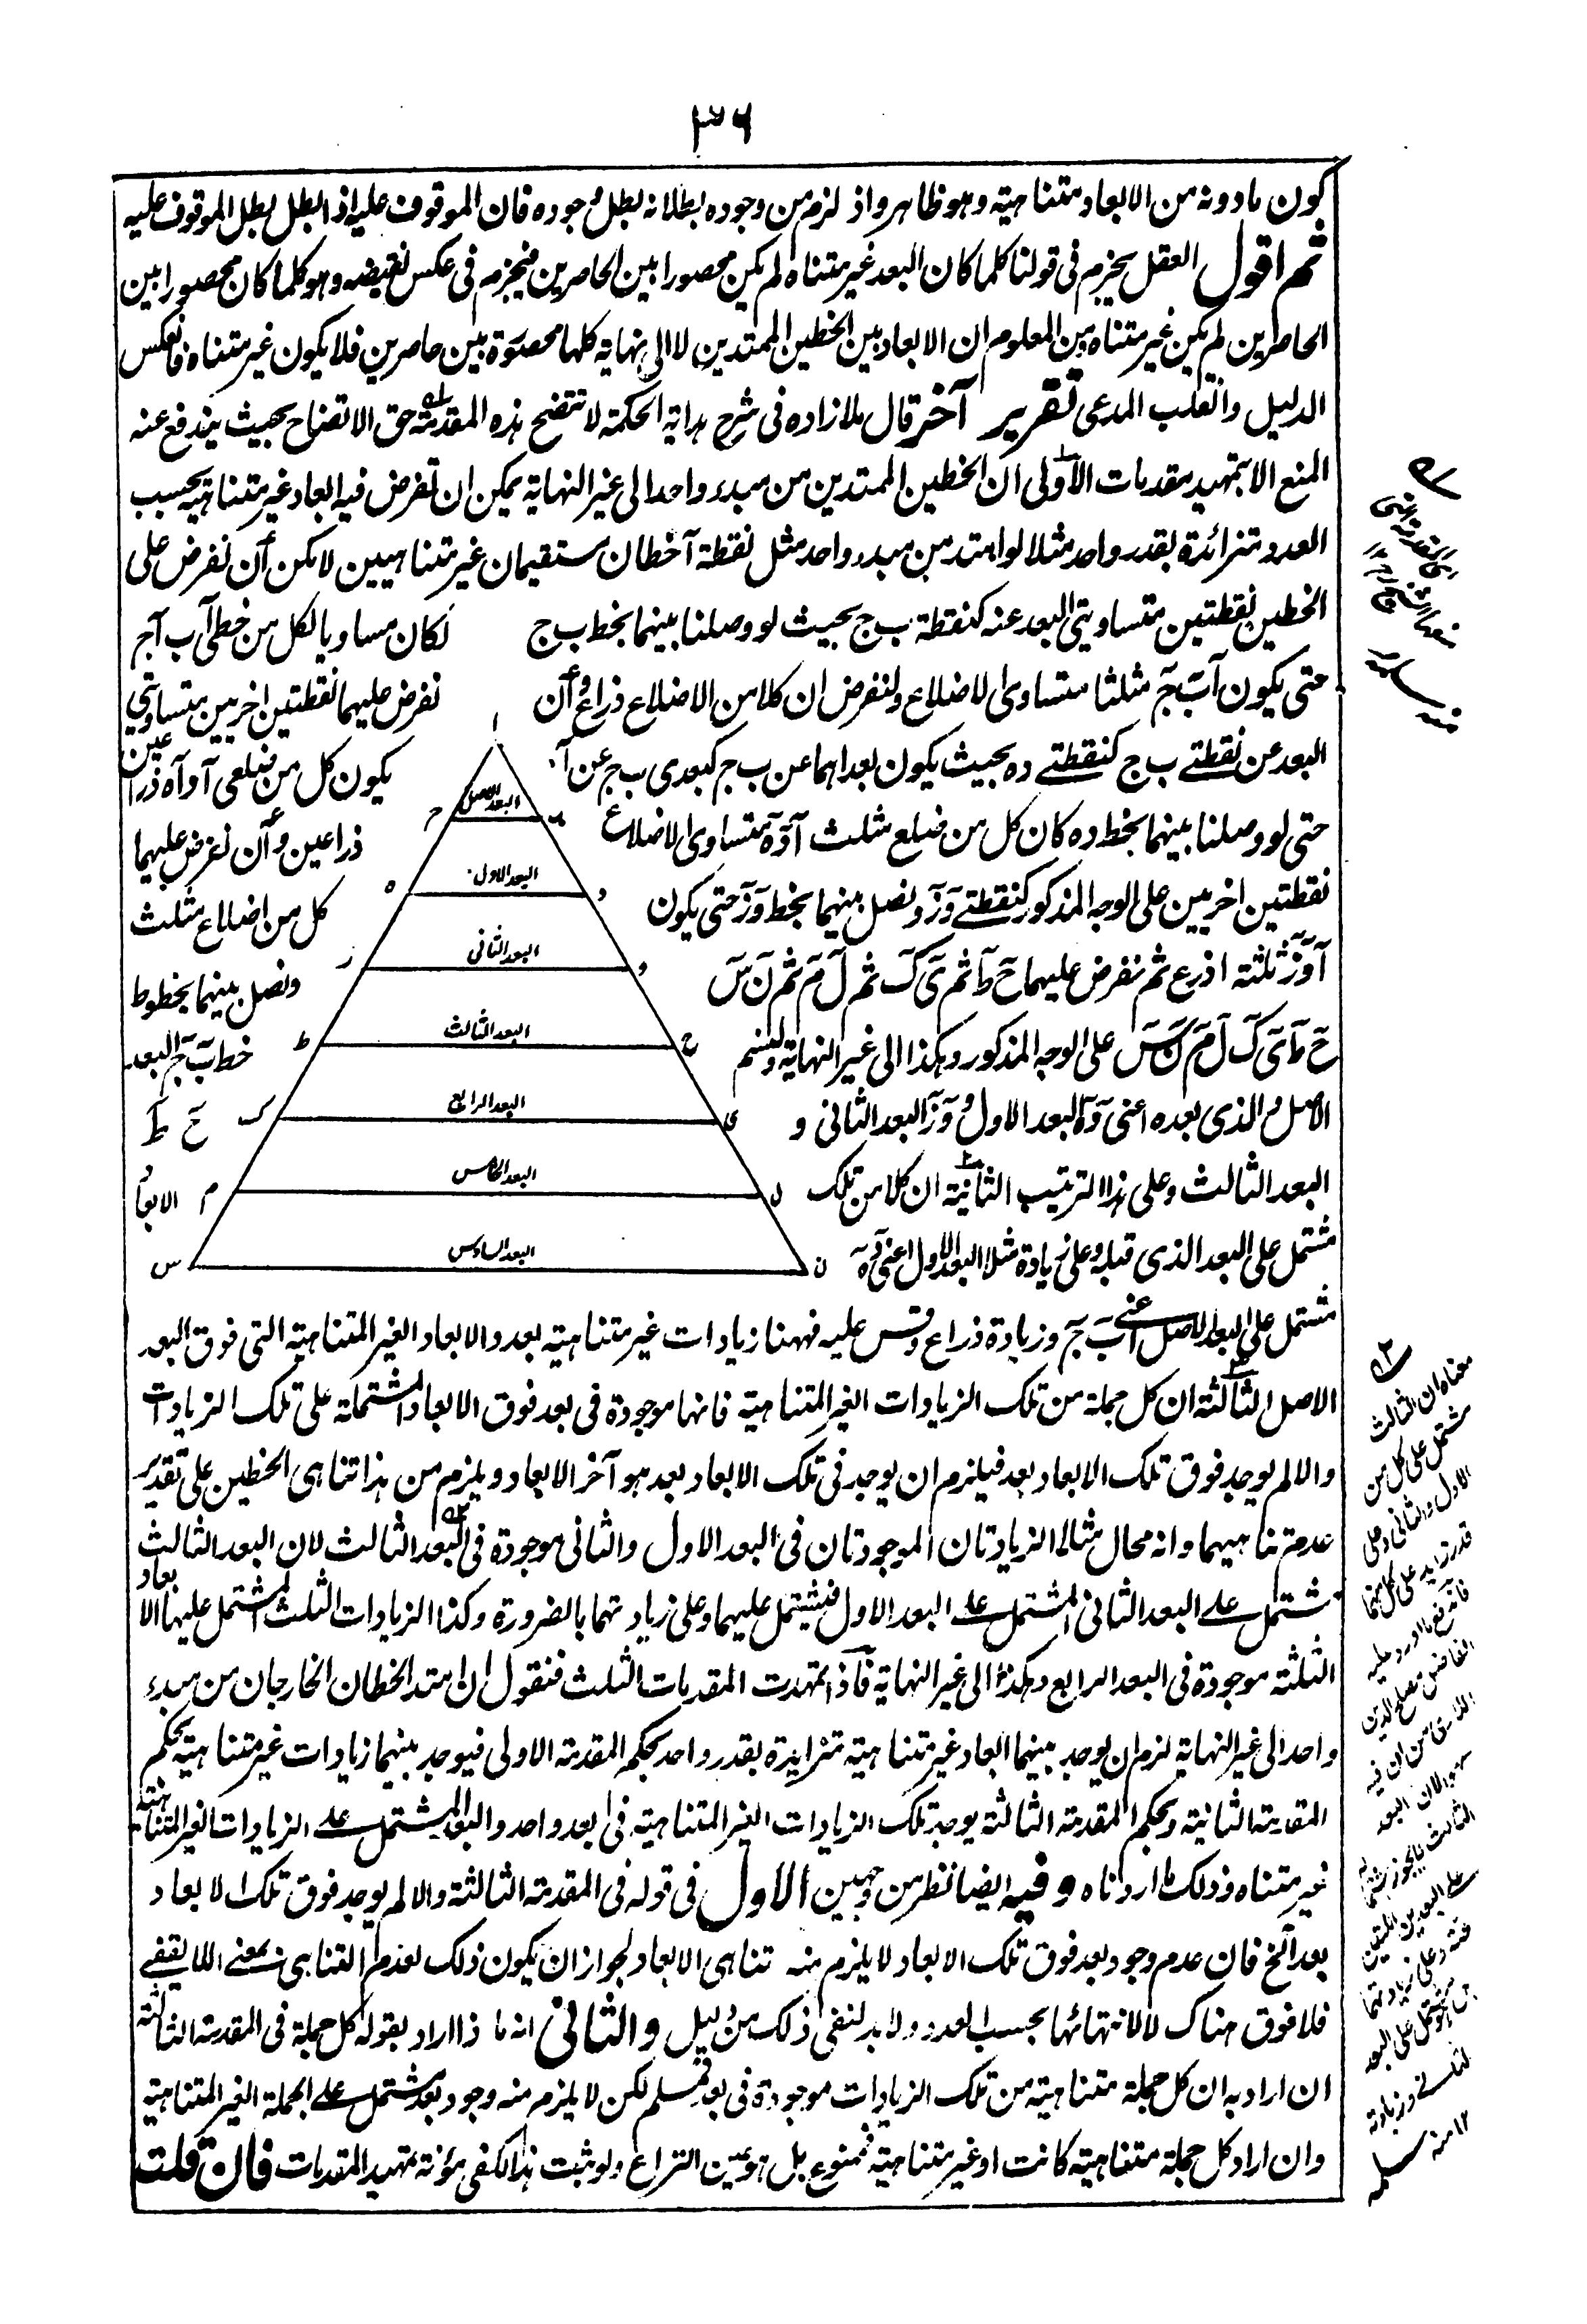 ٣٦
كون ما دونه من الابعاد متناهية وهو ظاهر واذ لزم من وجوده بطلانه بطل وجوده فان الموقوف عليه اذا بطل بطل الموقوف عليه
ثم اقول العقل يجزم فى قولنا كلما كان البعد غير متناه لم يكن محصورا بين الحاصرين فيجزم فى عكس نقيضه وهو كلما كان محصورا بين
الحاصرين لم يكن غير متناه ومن المعلوم ان الابعاد بين الخطين الممتدين لا الى نهاية كلها محصورة بين حاصرين فلا يكون غير متناه فانعكس
الدليل وانقلب المدعى تقرير آخر قال ملا زاده فى شرح هداية الحكمة لا تتضح هذه المقدمة حق الاتضاح بحيث يندفع عنه
المنع الا بتمهيد مقدمات الاولى ان الخطين الممتدين من مبدء واحد الى غير النهاية يمكن ان تفرض فيه ابعاد غير متناهية بحسب
العدد متزائدة بقدر واحد مثلا لو امتد من مبدء واحد مثل نقطة آ خطان مستقيمان غير متناهيين لامكن أن نفرض على
الخطين نقطتين متساويتى البعد عنه كنقطة ب ج بحيث لو وصلنا بينهما بخط ب ج لكان مساويا لكل من خطى آ ب آ ج
حتى يكون آ ب ج مثلثا متساوى الاضلاع ولنفرض ان كلا من الاضلاع ذراع وأن نفرض عليهما نقطتين اخريين متساويتى
البعد عن نقطتے ب ج كنقطتے ده بحيث يكون بعداهما عن ب ج كبعدى ب ج عن آ يكون كل من ضلعى آد آه ذراعين
حتى لو وصلنا بينهما بخط ده كان كل من ضلع مثلث آ دَ ه متساوى الاضلاع ذراعين وأن نفرض عليهما
نقطتين اخريين على الوجه المذكور كنقطتے وَ زَ ونصل بينهما بخط وَ زَ حتى يكون كل من اضلاع مثلث
آ وَ زَ ثلثة اذرع ثم نفرض عليهما حَ طَ ثم ىَ كَ ثم لَ مَ ثم نَ سَ ونصل بينهما بخطوط
حَ طَ ىَ كَ لَ مَ نَ سَ على الوجه المذكور وهكذا الى غير النهاية ولنسم خط بَ جَ البعد
الاصل والذى بعده اعنى دَ هَ البعد الاول و وَ زَ البعد الثانى و حَ طَ
البعد الثالث وعلى هذا الترتيب الثانية ان كلا من تلك الابعاد
مشتمل على البعد الذى قبله وعلى زيادة مثلا البعد الاول اعنى دَ هَ
ا
البعد الاصل
ب
ج
البعد الاول
د
ه
البعد الثانى
و
ز
البعد الثالث
ح
ط
البعد الرابع
ى
ك
البعد الخامس
ل
م
البعد السادس
ن
س
مشتمل على البعد الاصل اعنے بَ جَ وزيادة ذراع وقس عليه فههنا زيادات غير متناهية بعدد الابعاد الغير المتناهية التى فوق البعد
الاصل الثالثة ان كل جملة من تلك الزيادات الغير المتناهية فانها موجودة فى بعد فوق الابعاد المشتملة على تلك الزيادات
والا لم يوجد فوق تلك الابعاد بعد فيلزم ان يوجد فى تلك الابعاد بعد هو آخر الابعاد ويلزم من هذا تناهى الخطين على تقدير
عدم تناهيهما وانه محال مثاله الزيادتان الموجودتان فى البعد الاول والثانى موجودة فى البعد الثالث لان البعد الثالث
مشتمل علے البعد الثانى المشتمل علے البعد الاول فيشتمل عليهما وعلى زيادتهما بالضرورة وكذا الزيادات الثلث المشتمل عليها الابعاد
الثلثة موجودة فى البعد الرابع وهكذا الى غير النهاية فاذا تمهدت المقدمات الثلث فنقول ان امتد الخطان الخارجان من مبدء
واحد الى غير النهاية لزم ان يوجد بينهما ابعاد غير متناهية متزايدة بقدر واحد بحكم المقدمة الاولى فيوجد بينهما زيادات غير متناهية بحكم
المقدمة الثانية وبحكم المقدمة الثالثة يوجد تلك الزيادات الغير المتناهية فى بعد واحد والبعد المشتمل علے الزيادات الغير المتناهية
غير متناه وذلك ما اردناه وفيه ايضا نظر من وجهين الاول فى قوله فى المقدمة الثالثة والا لم يوجد فوق تلك الابعاد
بعد الخ فان عدم وجود بعد فوق تلك الابعاد لا يلزم منه تناهى الابعاد لجواز ان يكون ذلك لعدم التناهى بمعنے اللا يقفے
فلا فوق هناك لا لانتهائها بحسب العدد ولا بد لنفى ذلك من دليل والثانى انه ما ذا اراد بقوله كل جملة فى المقدمة الثالثة
ان اراد به ان كل جملة متناهية من تلك الزيادات موجودة فى بعد فمسلم لكن لا يلزم منه وجود بعد مشتمل علے الجملة الغير المتناهية
وان اراد كل جملة متناهية كانت او غير متناهية فممنوع بل هو عين النزاع ولو ثبت هذا لكفى مؤنة تمهيد المقدمات فان قلت
معناه ان الثالث
مشتمل على كل من
الاول والثانى وعلى
قدر زايد على كل منهما
فاندفع ما اورد عليه